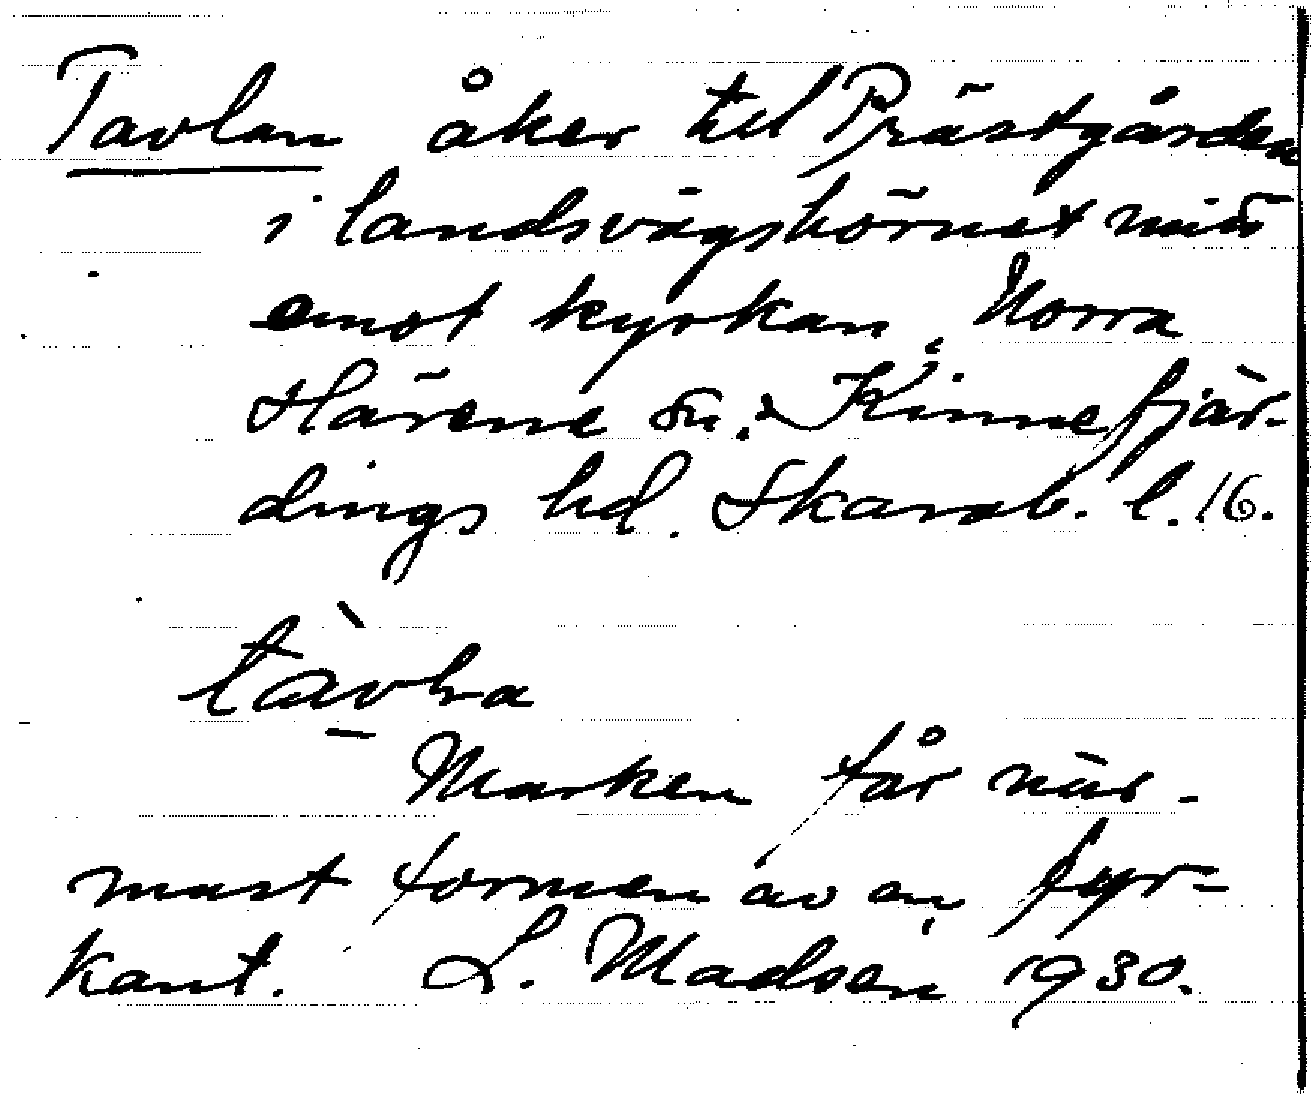 Tavlan åker till Prästgården
i landsvägshörnet mitt
emot kyrkan, Norra
Härene sn. Kinnefjär-
dings hd. Skarab. l. 16.
tàvla
Marken får när-
mast formen av en fyr-
kant. L. Madsen 1930.